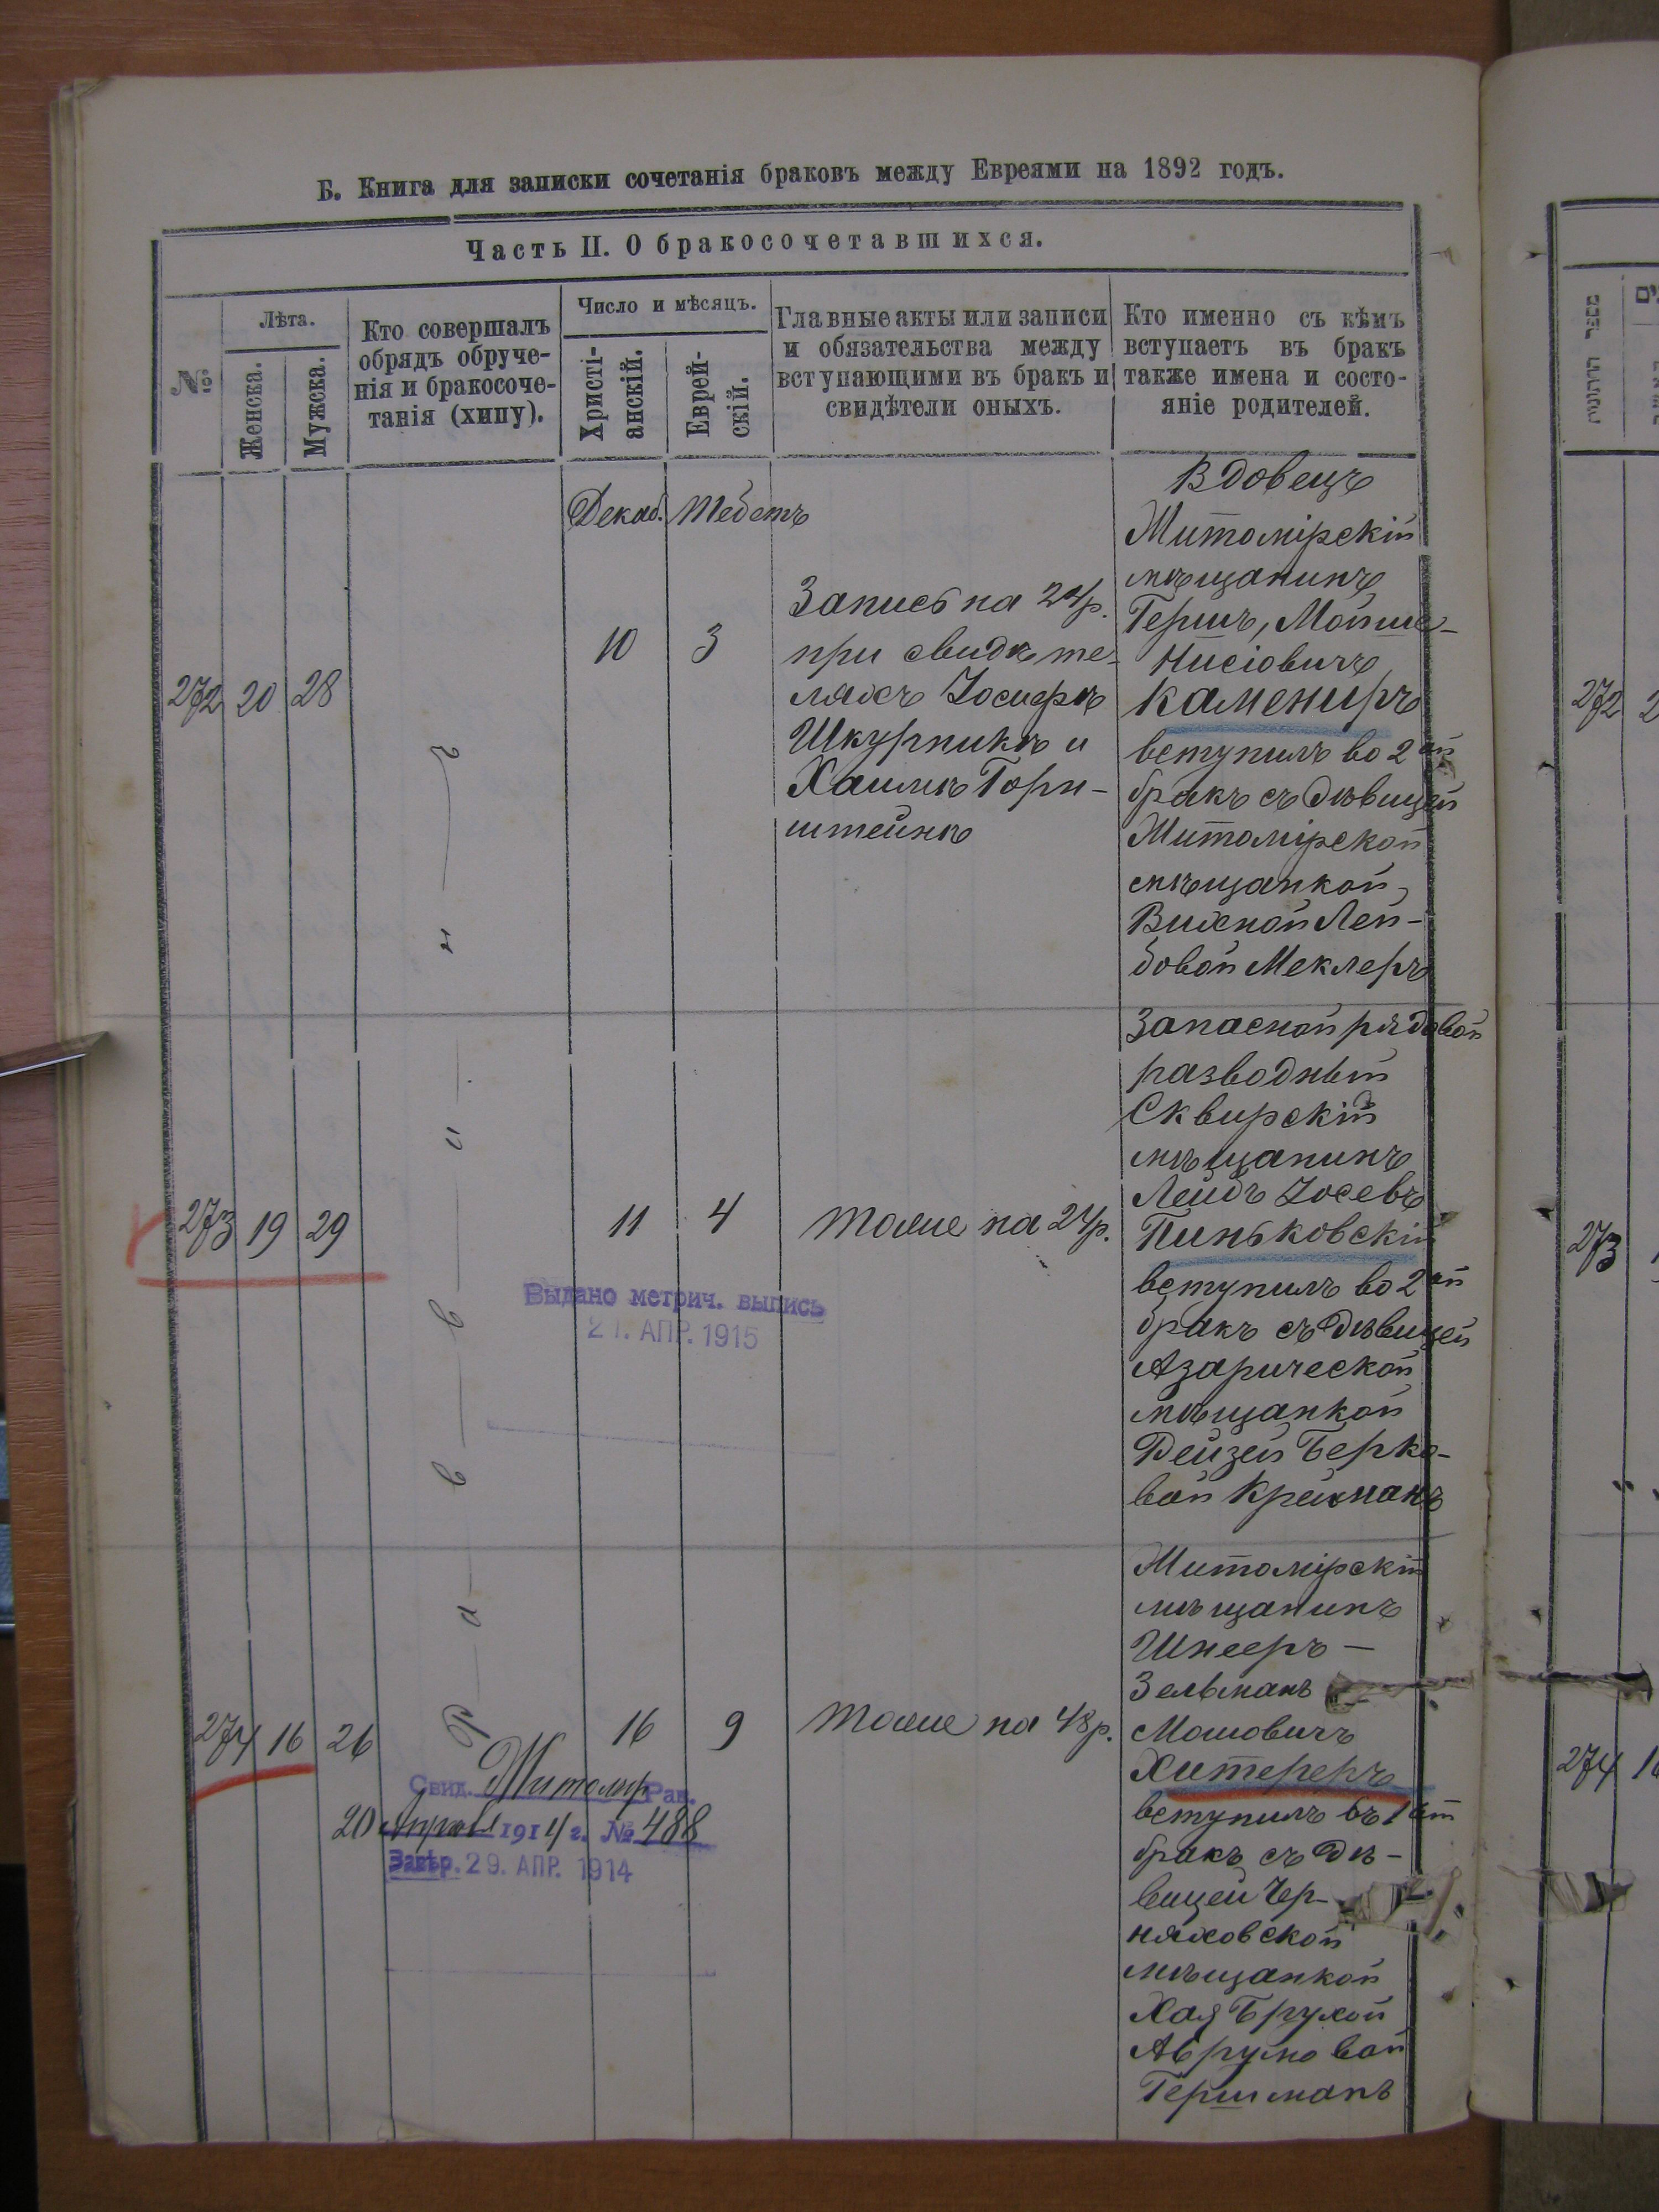 Б. Книга для записки сочетанія браковъ между Евреями на 1892 годъ.
Часть II. О бракосочетавшихся.
№
Лѣта.
Женска.
Мужска.
Кто совершалъ
обрядъ обруче-
нія и бракосоче-
танія (хипу).
Число и мѣсяцъ.
Христі-
анскій.
Еврей-
скій.
Главные акты или записи
и обязательства между
вступающими въ бракъ и
свидѣтели оныхъ.
Кто именно съ кѣмъ
вступаетъ въ бракъ
также имена и состо-
яніе родителей.
Декаб. Тебетъ
272 20 28
10 3
Запись на 24 р.
при свидѣте-
ляхъ Іосифѣ
Шкурникѣ и
Хаимѣ Горн-
штейнѣ
Вдовецъ
Житомірскій
мѣщанинъ
Гершъ, Мойше-
Нисіовичъ
Камениръ
вступилъ во 2ой
бракъ съ дѣвицей
Житомірской
мѣщанкой
Вихной Лей-
бовой Меклеръ
Р — а — в — в — и — н — ъ
273 19 29
11 4
Тоже на 24 р.
Выдано метрич. выпись
21. АПР. 1915
Запасной рядовой
разводный
Сквирскій
мѣщанинъ
Лейбъ Іосевъ
Пиньковскій
вступилъ во 2ой
бракъ съ дѣвицей
Азарической
мѣщанкой
Дейзей Берко-
вой Крейманъ
274 16 26
16 9
Тоже на 48 р.
Свид. Житомір Рав.
20 Апреля 1914 г. № 488
Завѣр. 29. АПР. 1914
Житомірскій
мѣщанинъ
Шнееръ —
Зельманъ
Мошовичъ
Хитереръ
вступилъ въ 1ый
бракъ съ дѣ-
вицей Чер-
няховской
мѣщанкой
Хая Брухой
Аврумовой
Гершманъ
מספר
272
273
274